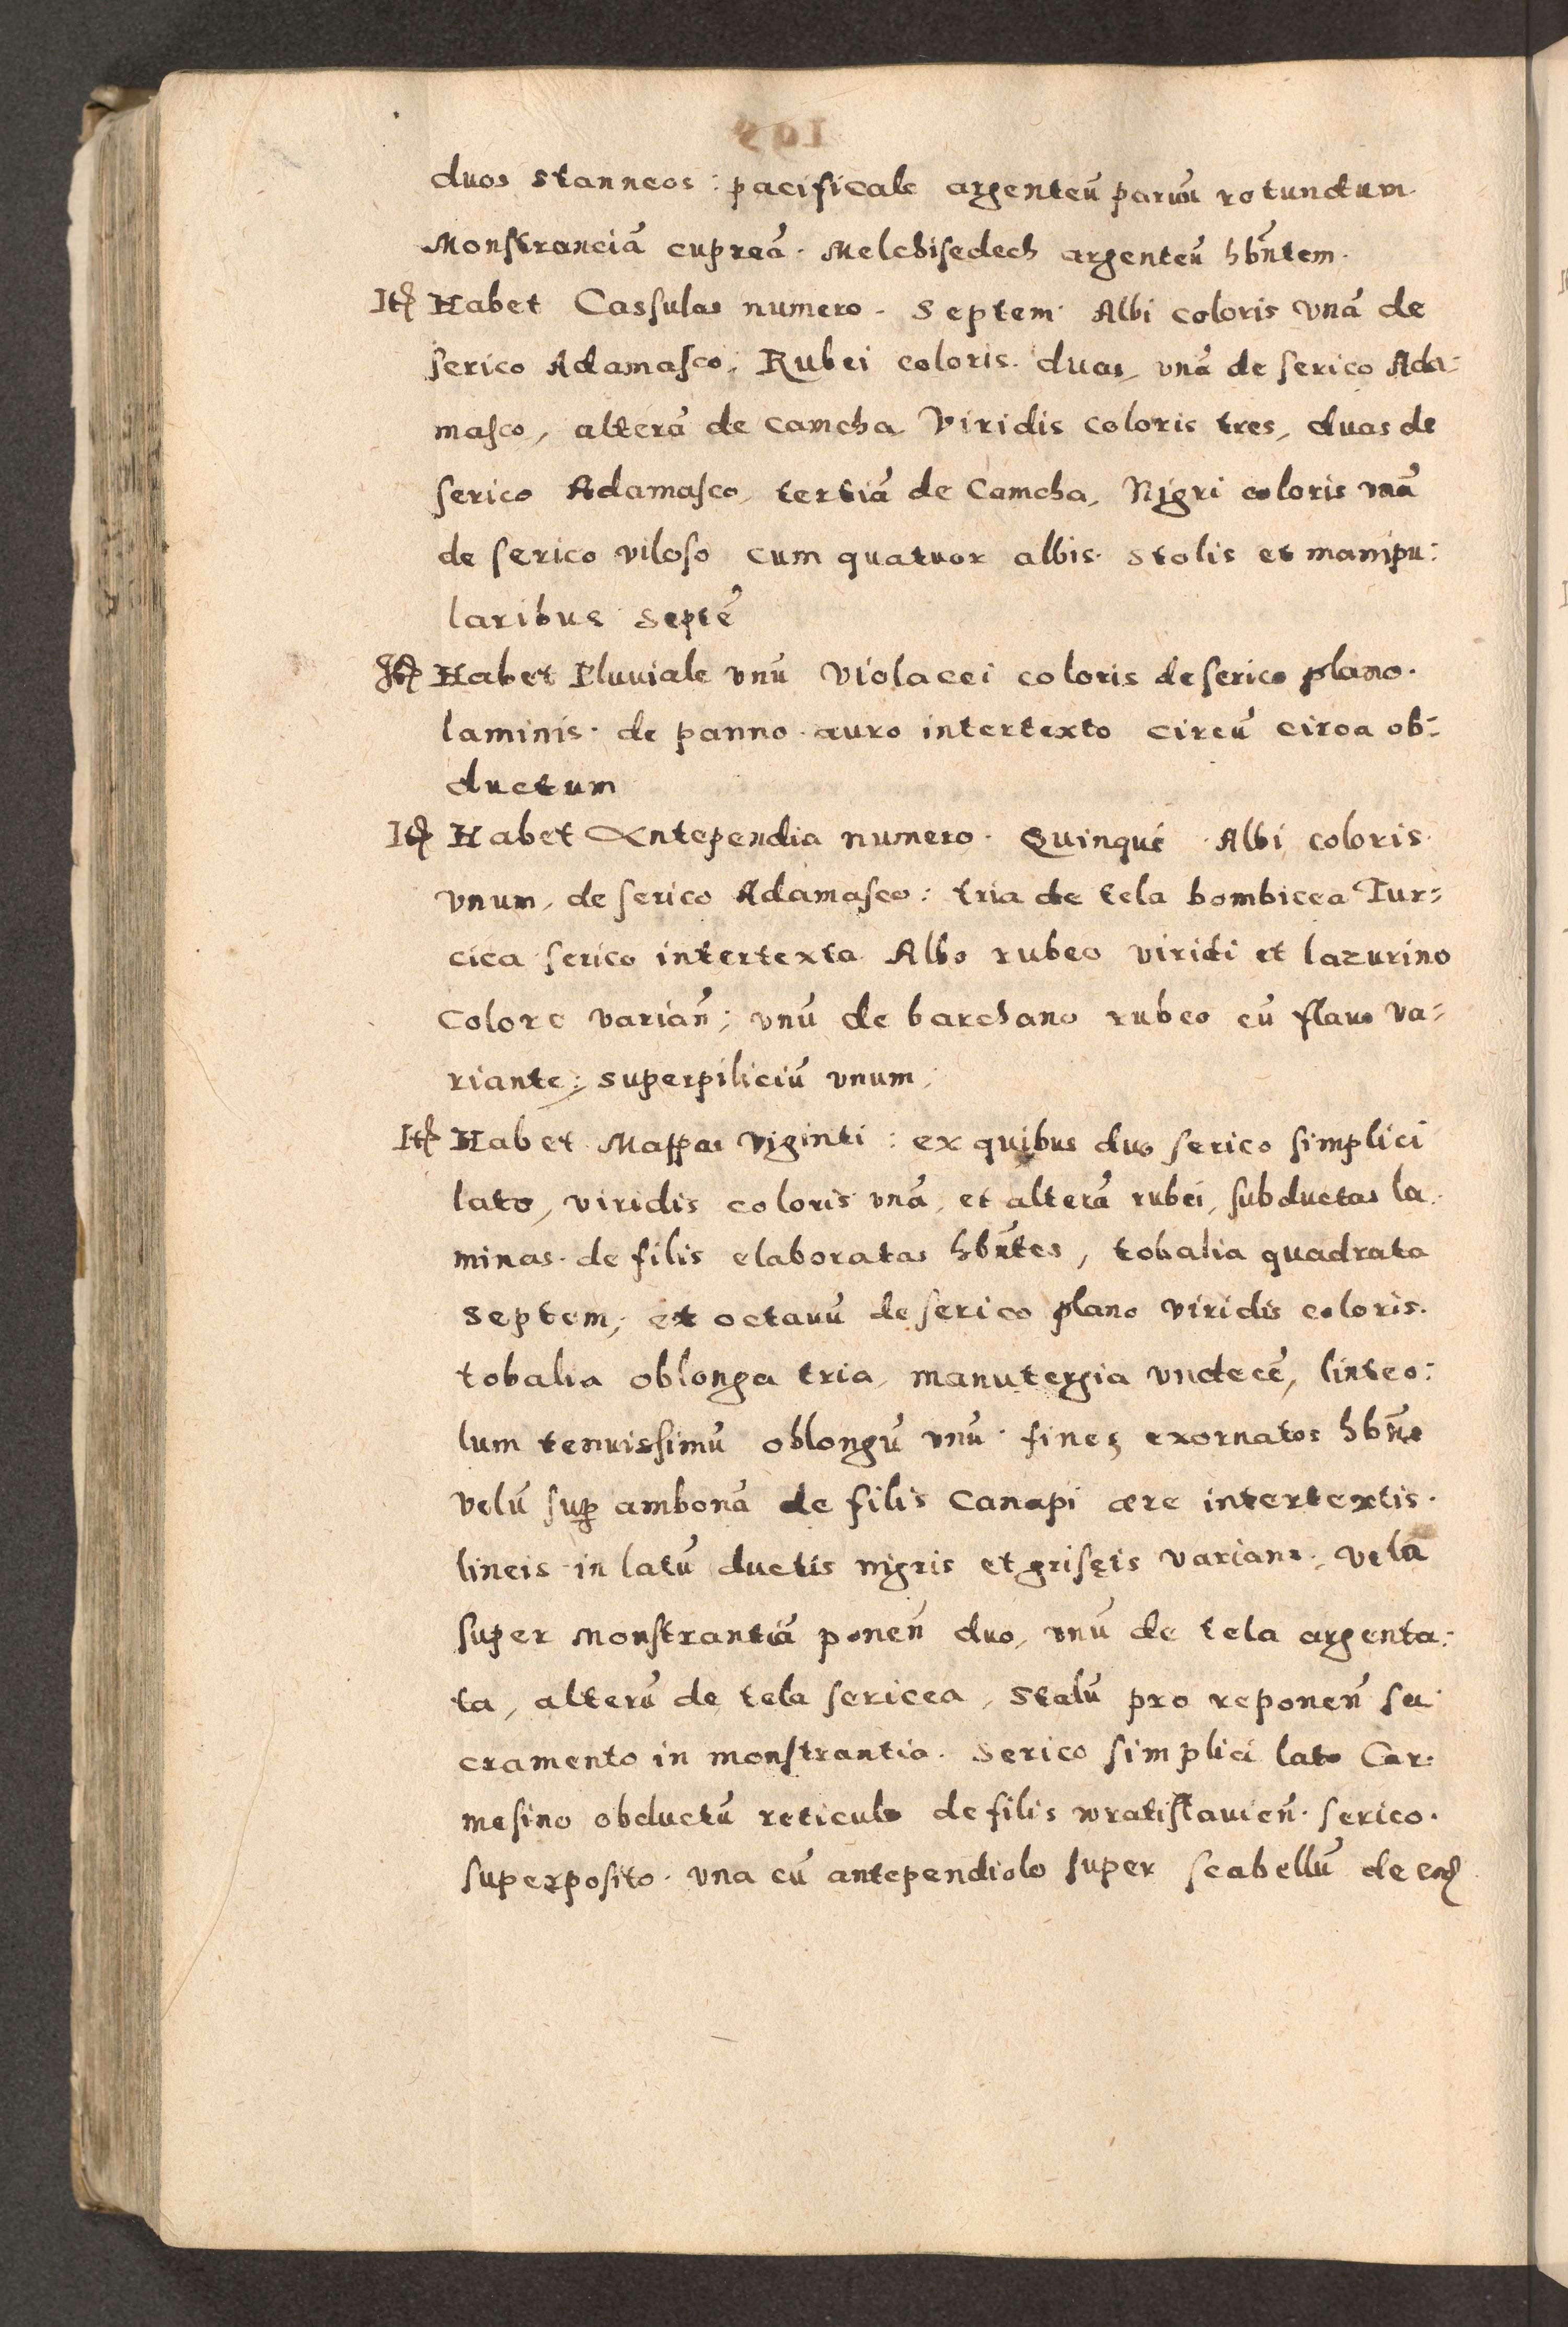 duos stanneos : pacificale argenteū paruū rotundum
Monstranciā cupreā. Melchisedech argenteū hbn̄tem.
Itē Habet Cassulas numero. Septem. Albi coloris vnā de
serico Adamasco, Rubei coloris. duas, vnā de serico Ada:
masco, alterā de camcha Viridis coloris tres, duas de
serico Adamasco, tertiā de Camcha, Nigri coloris vnā
de serico viloso cum quatuor albis. Stolis et manipu:
laribus septē
Itē Habet Pluuiale vnū Violacei coloris de serico plano.
laminis. de panno. auro intertexto circū circa ob:
ductum
Itē Habet Antependia numero. Quinqué. Albi coloris.
vnum, de serico Adamasco : tria de tela bombicea Tur:
cica serico intertexta Albo rubeo viridi et lazurino
colore varian̄; vnū de barchano rubeo cū flauo va:
riante; superpiliciū vnum;
Itē Habet Mappas Viginti : ex quibus duo serico simplici
lato, viridis coloris vnā, et alterā rubei, subductas la.
minas. de filis elaboratas hbn̄tes, tobalia quadrata
septem; et octauū de serico plano viridis coloris.
tobalia oblonga tria, manutergia vndecē, linteo:
lum tenuissimū oblongū vnū. fines exornatos hbn̄s
velū sup ambonā de filis Canapi aere intertextis.
lineis in latū ductis nigris et grisęis varians, vela
super monstrantiā ponen̄ duo, vnū de tela argenta:
ta, alterū de tela sericea, Stalū pro reponen̄ sa
cramento in monstrantia. Serico simplici lato Car:
mesino obductū reticulo de filis wratislauien̄. serico.
superposito. vna cū antependiolo super scabellū de eod